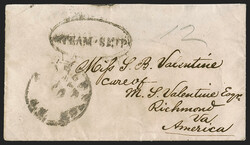 STEAM-SHIP
12
Miss S. B. Valentine
Care of
M. S. Valentine Esqr.
Richmond
Va
America